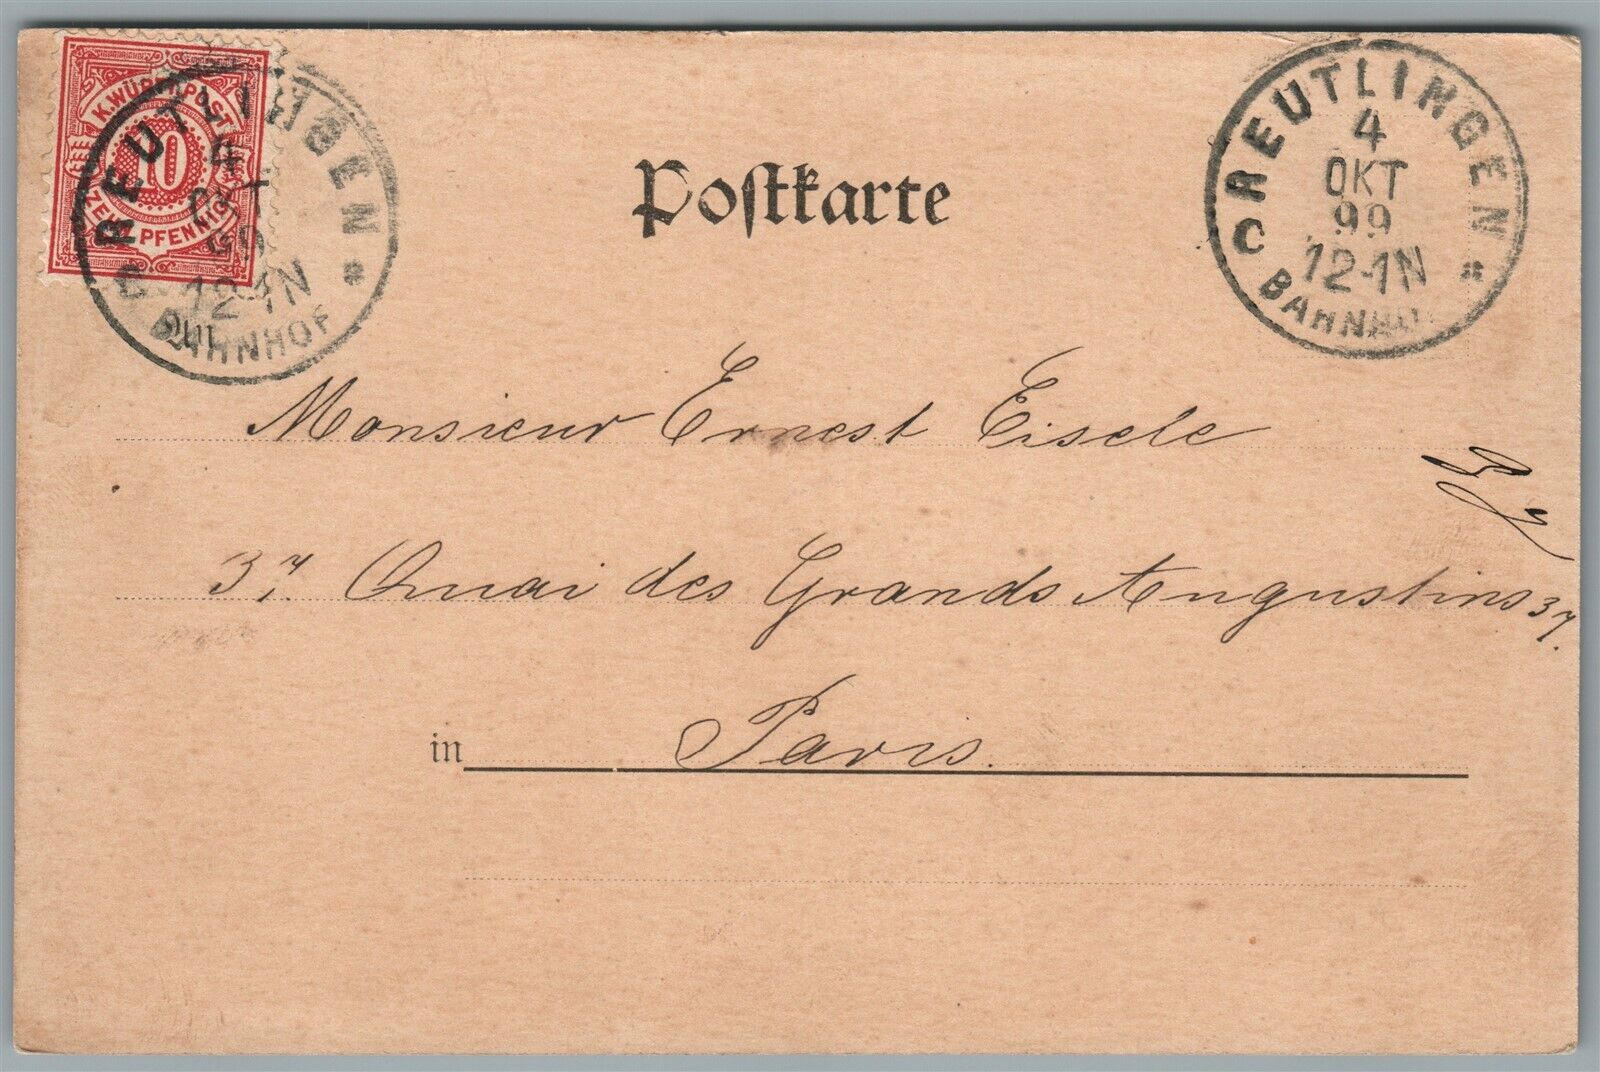 K. WÜRTT. POST
10
ZEHN PFENNIG
REUTLINGEN
4
OKT
99
12-1N
C BAHNHOF *
Postkarte
REUTLINGEN
4
OKT
99
12-1N
C BAHNHOF *
An
Monsieur Ernest Eisele
37. Quai des Grands Augustins 37.
in Paris.